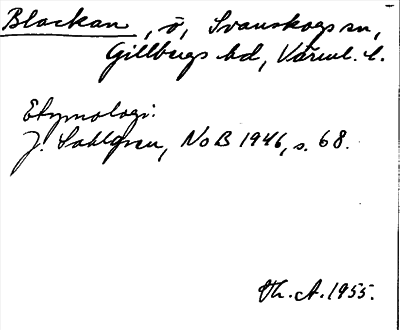 Blackan, ö, Svanskogs sn,
Gillbergs hd, Värml. l.
Etymologi:
J. Sahlgren, NoB 1946, s. 68.
Th. A. 1955.